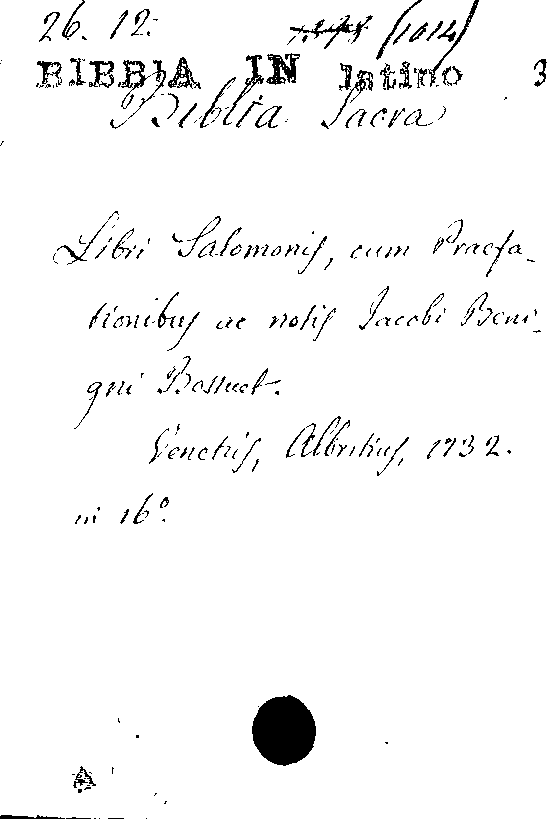 26. 12. (1014)
BIBBIA IN latino 3
Biblia Sacra
Libri Salomonis, cum Praefa-
tionibus ac notis Jacobi Beni-
gni Bossuet.
Venetiis, Albritius, 1732.
in 16º.